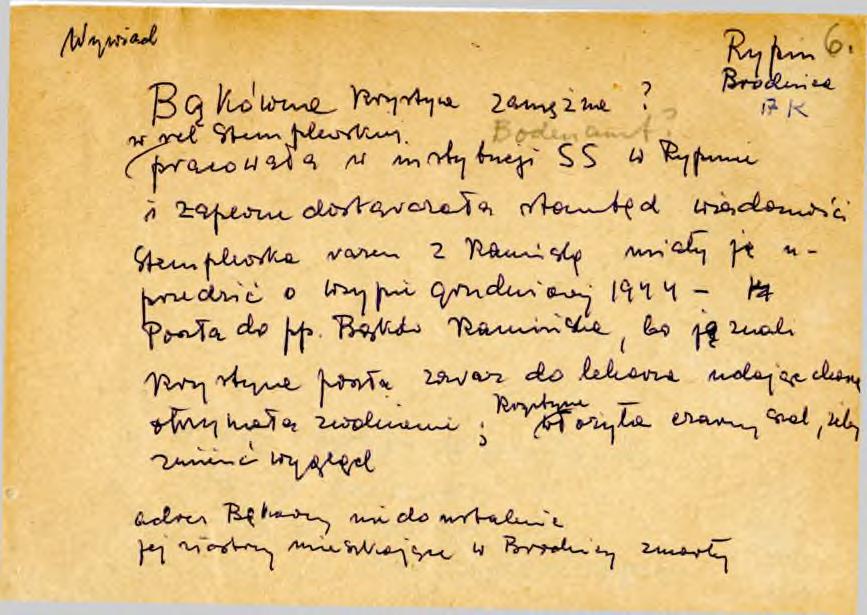 Wywiad
Rypin 6.
Brodnica
17 K
Bąkówna Krystyna zamężna ?
w rel Stemplewskiej Bodenamt?
pracowała w instytucji SS w Rypinie
i zapewne dostarczała stamtąd wiadomości
Stemplewska razem z Kamińską miały ją u-
przedzić o wsypie grudniowej 1944 –
Poszła do pp. Bąków Kamińska, bo ją znali
Krystyna poszła zaraz do lekarza udając chorą
otrzymała zwolnienie ; Krystyna włożyła czarny szal, żeby
zmienić wygląd
adres Bąkówny nie do ustalenia
jej siostry mieszkające w Brodnicy zmarły